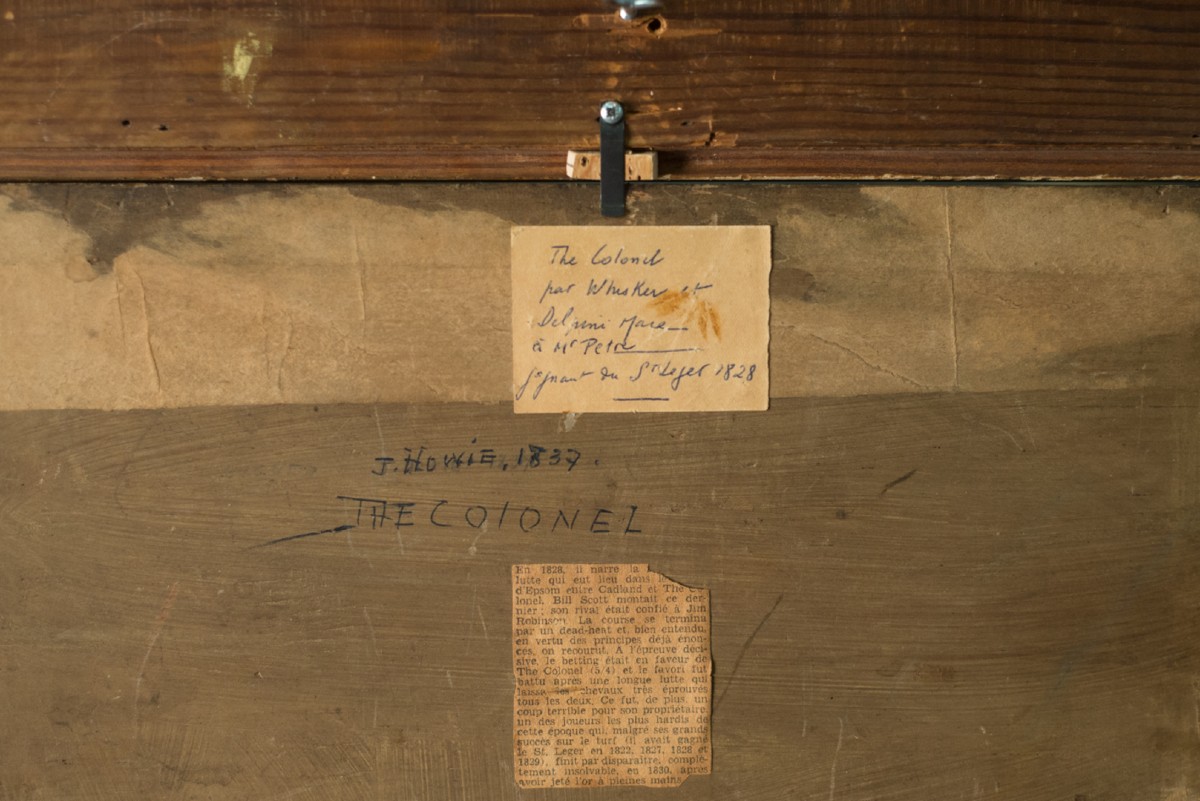 The Colonel
par Whisker et
Delpini Mare
à Mr Petre
gagnant du St Leger 1828
J. HOWIE, 1837.
THE COLONEL
En 1828, il narre la
lutte qui eut lieu dans
d'Epsom entre Cadland et The Co-
lonel. Bill Scott montait ce der-
nier ; son rival était confié à Jim
Robinson. La course se termina
par un dead-heat et, bien entendu,
en vertu des principes déjà énon-
cés, on recourut. A l'épreuve déci-
sive, le betting était en faveur de
The Colonel (5/4) et le favori fut
battu après une longue lutte qui
laissa les chevaux très éprouvés
tous les deux. Ce fut, de plus, un
coup terrible pour son propriétaire,
un des joueurs les plus hardis de
cette époque qui, malgré ses grands
succès sur le turf (il avait gagné
le St. Leger en 1822, 1827, 1828 et
1829), finit par disparaître, complè-
tement insolvable, en 1830, après
avoir jeté l'or à pleines mains.